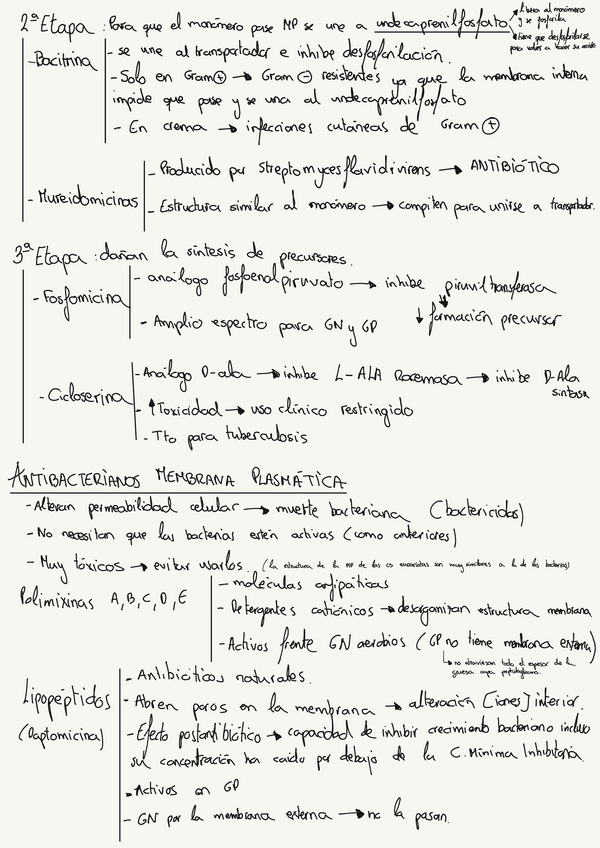 2ª Etapa : Para que el monómero pase MP se une a undecaprenilfosfato
al monómero
y se fosforila
tiene que desfosforilarse
para volver a hacer su acción
- Bacitrina
- se une al transportador e inhibe desfosforilación.
- Solo en Gram ⊕ → Gram ⊖ resistentes ya que la membrana interna
impide que pase y se una al undecaprenilfosfato
- En crema → infecciones cutáneas de Gram ⊕
- Mureidomicinas
- Producido por streptomyces flavidivirens → ANTIBIÓTICO
- Estructura similar al monómero → compiten para unirse a transportador.
3ª Etapa : dañan la síntesis de precursores.
- Fosfomicina
- análogo fosfoenolpiruvato → inhibe piruviltransferasa
↓ formación precursor
- Amplio espectro para GN y GP
- Cicloserina
- Análogo D-ala → inhibe L-ALA Racemasa → inhibe D-Ala
sintasa
- ↑Toxicidad → uso clínico restringido
- Tto para tuberculosis
ANTIBACTERIANOS MEMBRANA PLASMÁTICA
- Alteran permeabilidad celular → muerte bacteriana (bactericidas)
- No necesitan que las bacterias estén activas (como anteriores)
- Muy tóxicos → evitar usarlos. (la estructura de la MP de las eucariotas son muy similares a la de las bacterias)
Polimixinas A, B, C, D, E
- moléculas anfipáticas
- Detergentes catiónicos → desorganizan estructura membrana
- Activos frente GN aerobios (GP no tiene membrana externa)
↳ no atraviesan todo el espesor de la
gruesa capa peptidoglicano.
Lipopéptidos
(Daptomicina)
- Antibióticos naturales.
- Abren poros en la membrana → alteración [iones] interior.
- Efecto postantibiótico → capacidad de inhibir crecimiento bacteriano incluso
su concentración ha caido por debajo de la C. Mínima Inhibitoria.
- Activos en GP
- GN por la membrana externa → no la pasan.